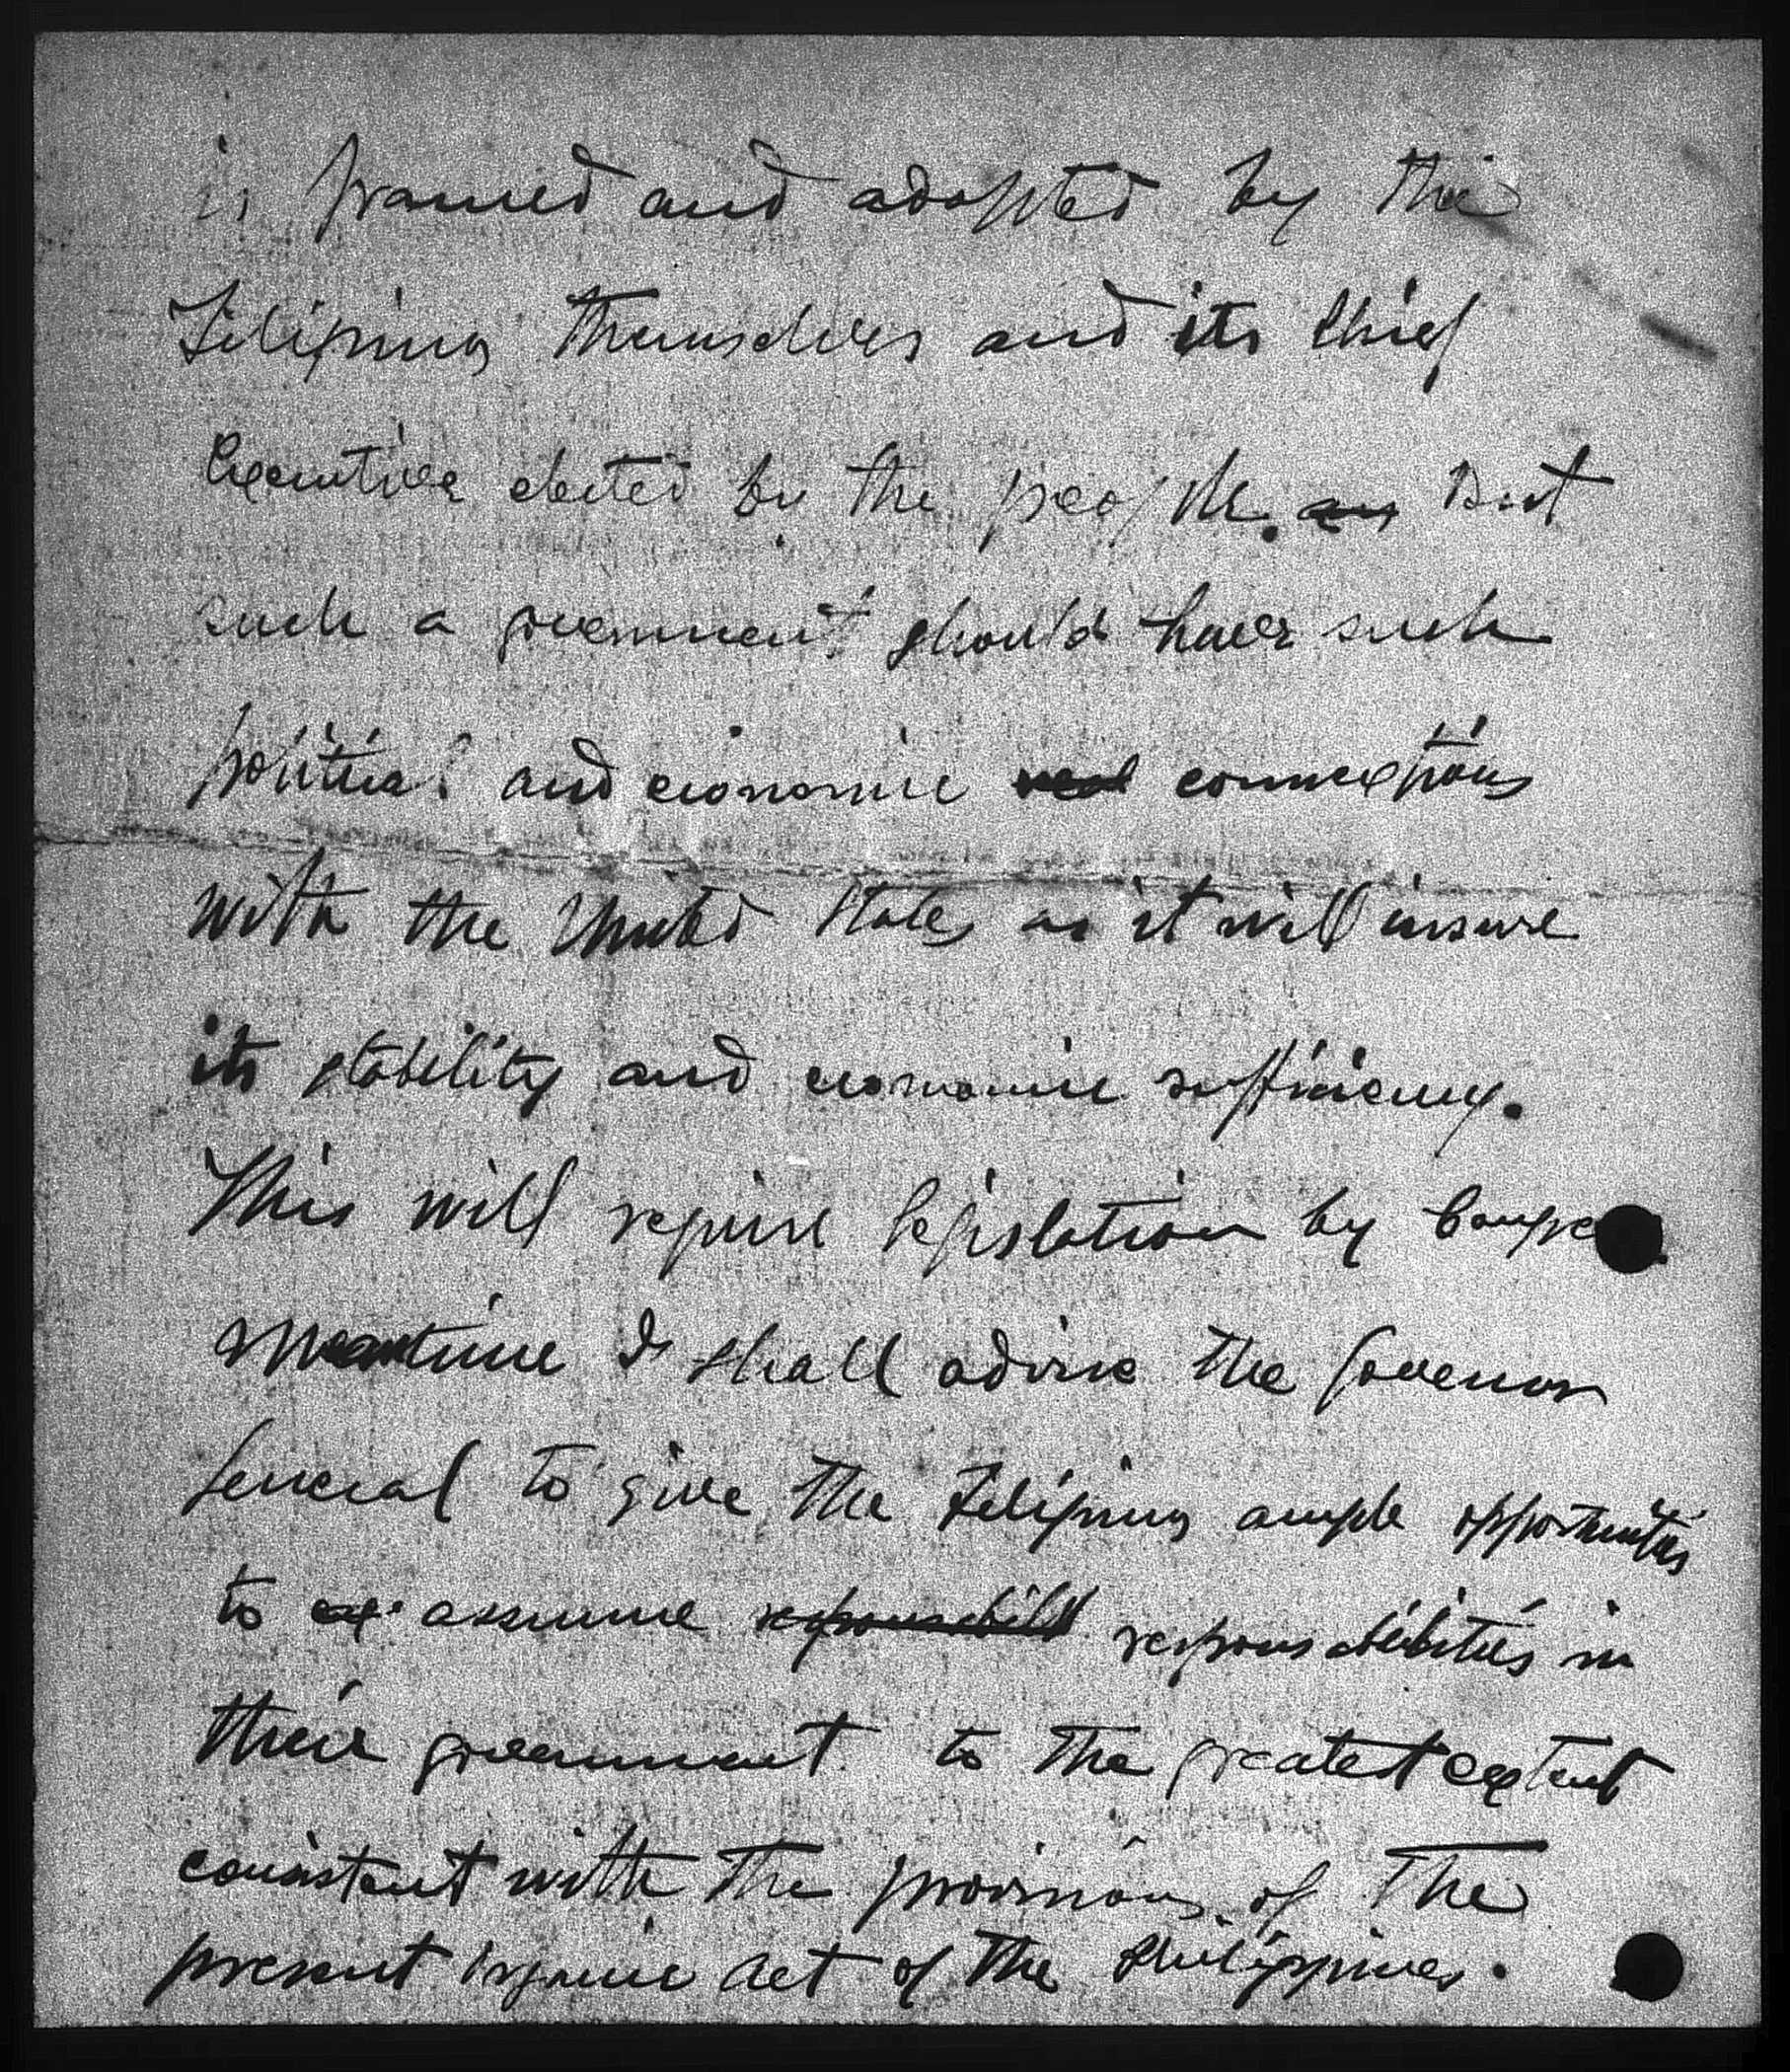 is framed and adopted by the
Filipinos themselves and its Chief
Executive elected by the people. an But
such a government should have such
political and economic connections
with the United States as it will insure
its stability and economic sufficiency.
This will require legislation by Congre
Meantime I shall advise the Governor
General to give the Filipinos ample opportunities
to assume responsibilit responsibilities in
their government to the greatest extent
consistent with the provisions of the
present Organic Act of the Philippines.